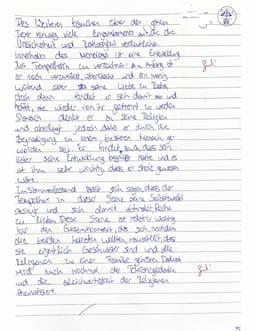 Des Weiteren tauchen über den ganzen
Text hinweg viele Enjambements auf, die die
Unsicherheit und
innerhalb des Monologs ist eine Entwicklung
des Tempelherrn zu verzeichnen. Am Anfang ist
er noch verzweifelt, überrascht und ein wenig
wütend über seine Liebe zu Recha,
doch dann findet er sich damit ab und
hofft, nie wieder von ihr getrennt zu werden.
Danach denkt er an seine Religion
und überlegt, jedoch dass er durch die
Begnadigung ein besserer Mensch ge-
worden sei. Er findet auch, dass sein
Vater seine Entwicklung hätte und es
ist ihm sehr wichtig, dass er stolz gewesen
wäre.
Zusammenfassend lässt sich sagen, dass der
Tempelherr in dieser Szene seine
und sich damit abfindet, Recha
zu lieben. Diese Szene ist relativ wichtig
für den Gesamtkontext, da sich, nachdem
die beiden heiraten wollen, rausstellt, dass
sie eigentlich Geschwister sind und alle
Religionen zu einer Familie gehören. Dadurch
wird auch nochmal der Toleranzgedanke
und die Gleichwertigkeit der Religionen
thematisiert.